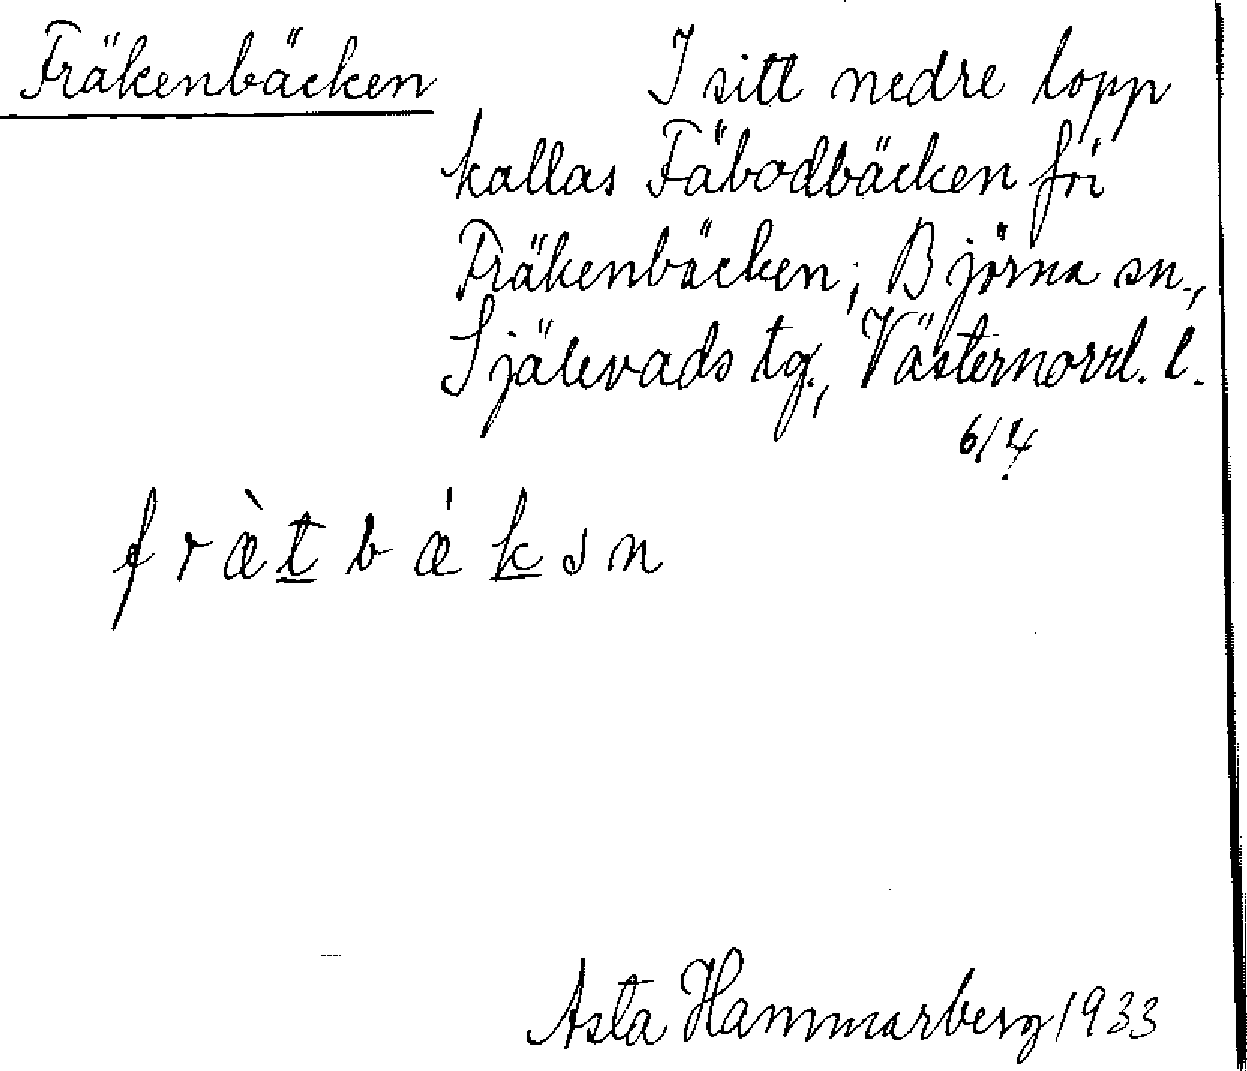 Fräkenbäcken I sitt nedre lopp
kallas Fäbodbäcken för
Fräkenbäcken; Björna sn.,
Själevads tg., Västernorrl. l.
6/4
f r æ̀ t̲ b ǽ k̲ s n
Asta Hammarberg 1933